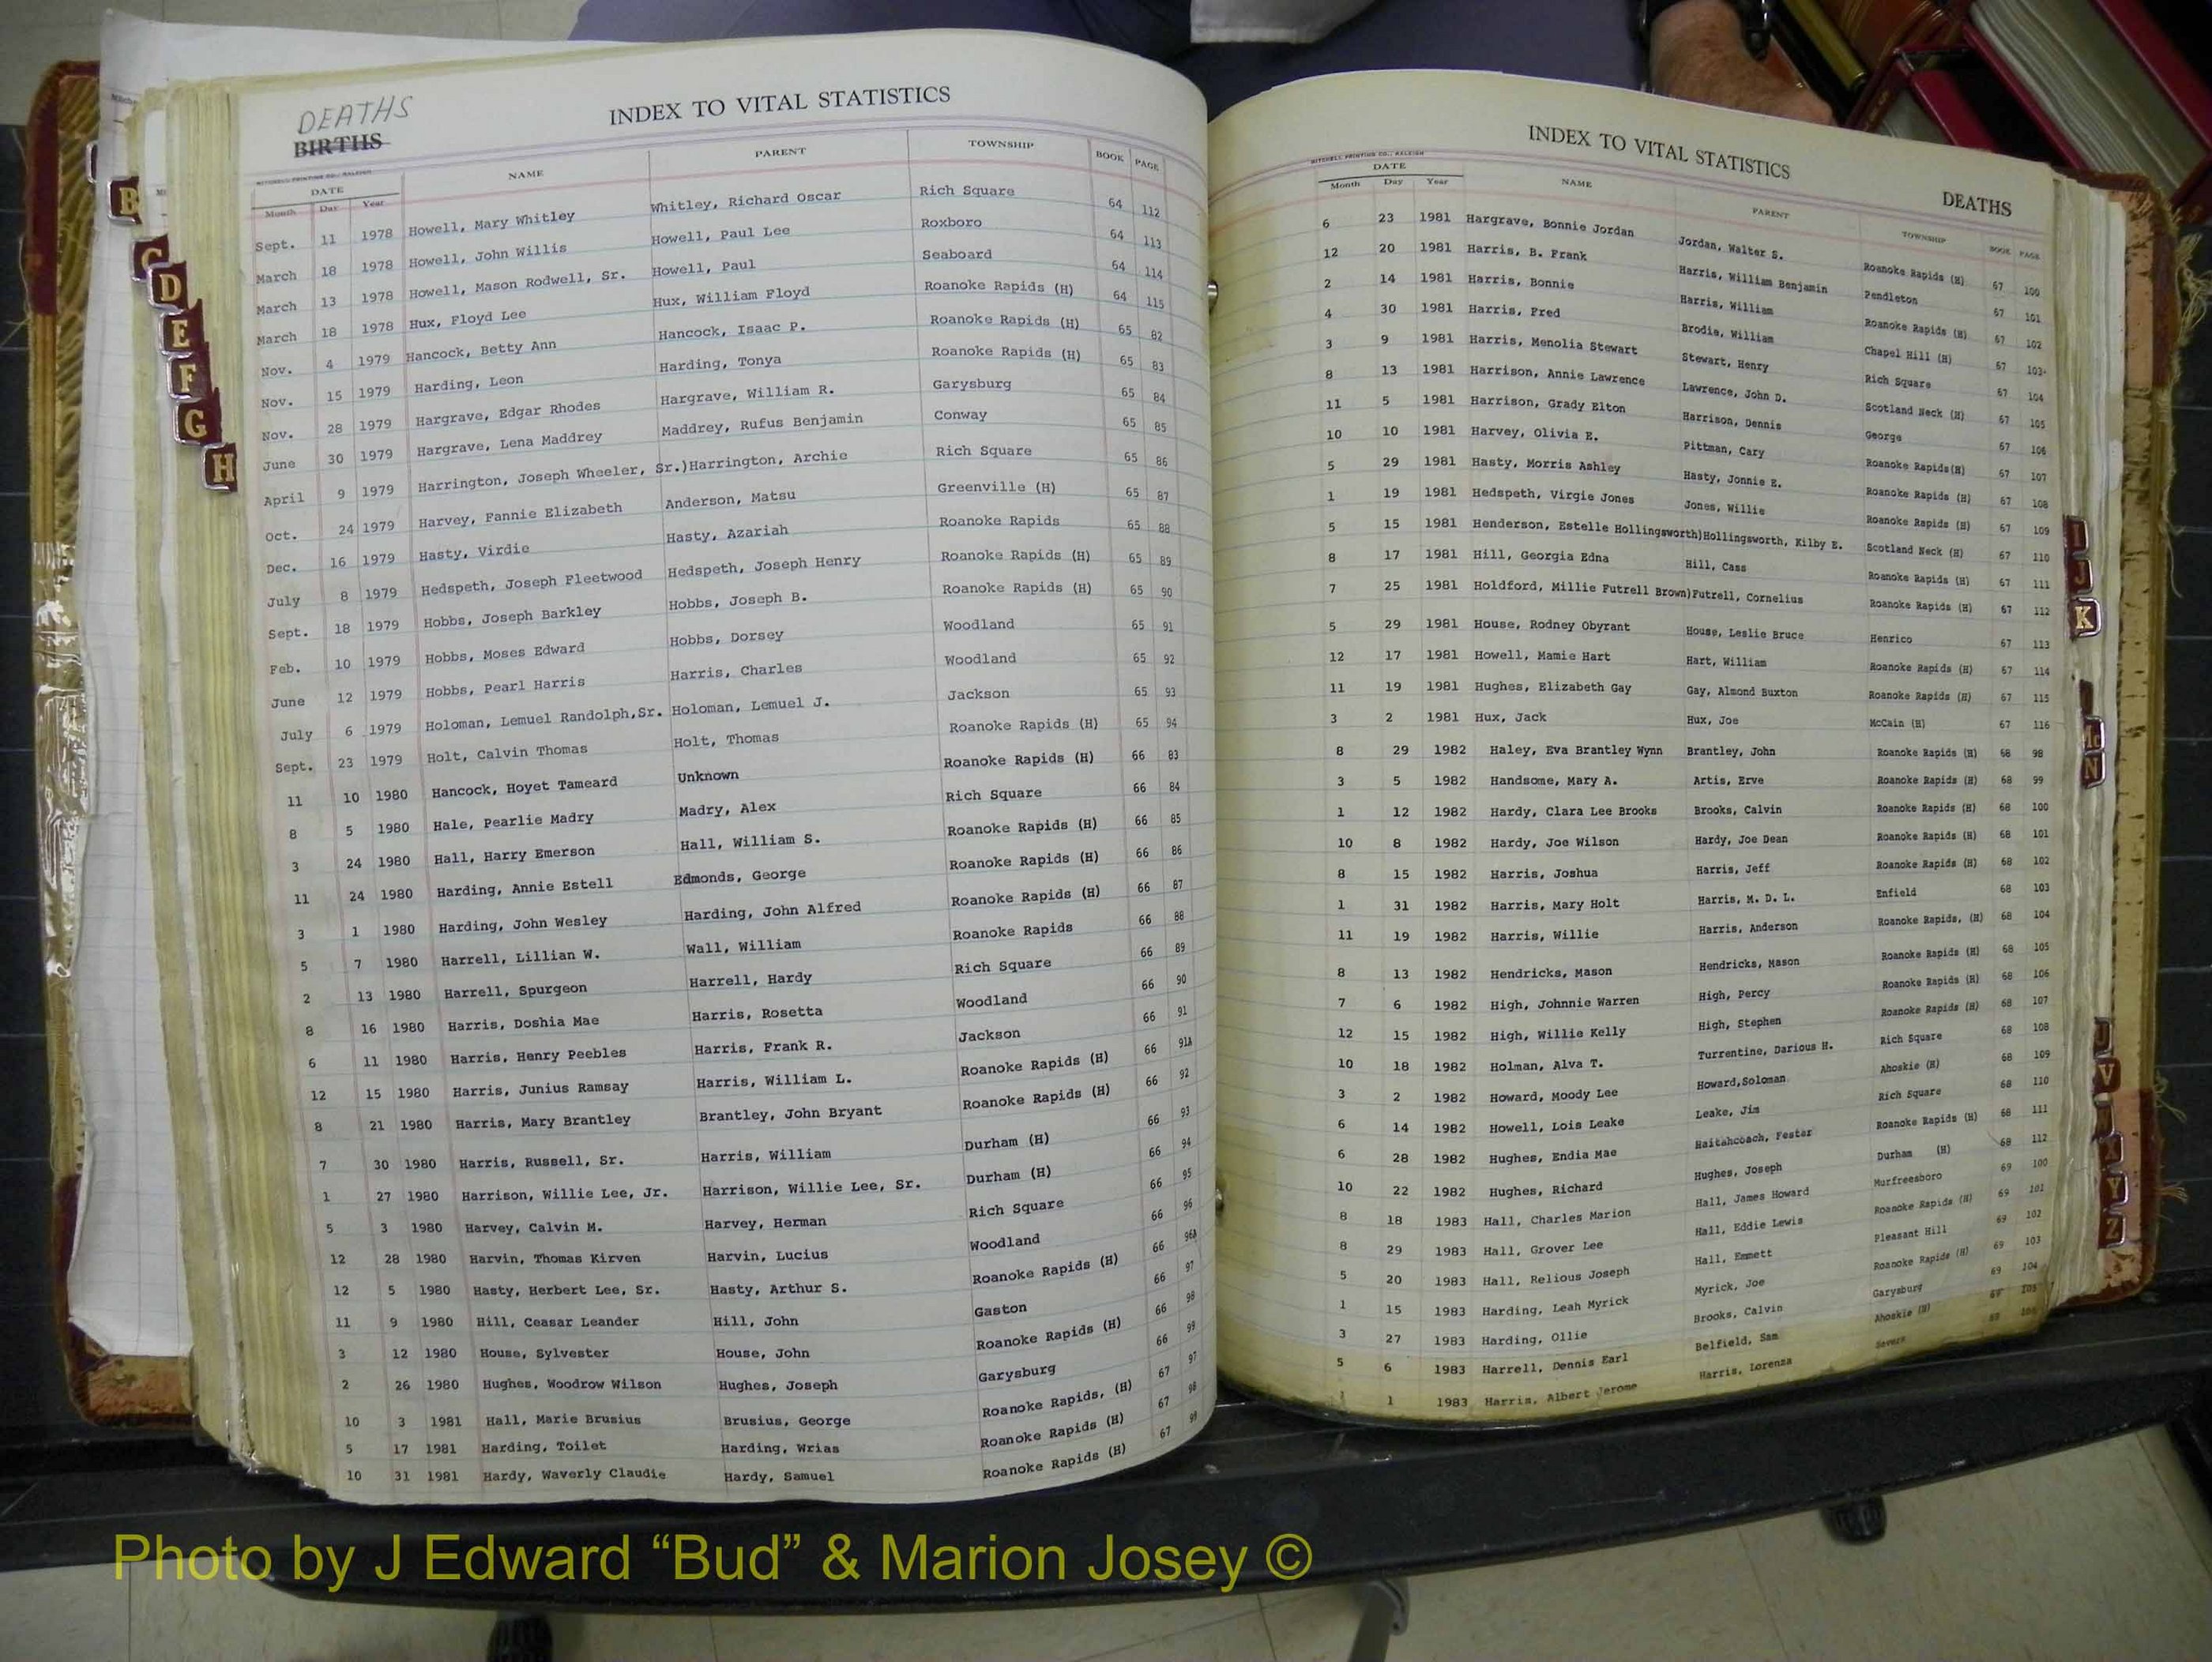 DEATHS
BIRTHS
INDEX TO VITAL STATISTICS
MITCHELL PRINTING CO., RALEIGH
DATE NAME PARENT TOWNSHIP BOOK PAGE
Month Day Year
Sept. 11 1978 Howell, Mary Whitley Whitley, Richard Oscar Rich Square 64 112
March 18 1978 Howell, John Willis Howell, Paul Lee Roxboro 64 113
March 13 1978 Howell, Mason Rodwell, Sr. Howell, Paul Seaboard 64 114
March 18 1978 Hux, Floyd Lee Hux, William Floyd Roanoke Rapids (H) 64 115
Nov. 4 1979 Hancock, Betty Ann Hancock, Isaac P. Roanoke Rapids (H) 65 82
Nov. 15 1979 Harding, Leon Harding, Tonya Roanoke Rapids (H) 65 83
Nov. 28 1979 Hargrave, Edgar Rhodes Hargrave, William R. Garysburg 65 84
June 30 1979 Hargrave, Lena Maddrey Maddrey, Rufus Benjamin Conway 65 85
April 9 1979 Harrington, Joseph Wheeler, Sr.)Harrington, Archie Rich Square 65 86
Oct. 24 1979 Harvey, Fannie Elizabeth Anderson, Matsu Greenville (H) 65 87
Dec. 16 1979 Hasty, Virdie Hasty, Azariah Roanoke Rapids 65 88
July 8 1979 Hedspeth, Joseph Fleetwood Hedspeth, Joseph Henry Roanoke Rapids (H) 65 89
Sept. 18 1979 Hobbs, Joseph Barkley Hobbs, Joseph B. Roanoke Rapids (H) 65 90
Feb. 10 1979 Hobbs, Moses Edward Hobbs, Dorsey Woodland 65 91
June 12 1979 Hobbs, Pearl Harris Harris, Charles Woodland 65 92
July 6 1979 Holoman, Lemuel Randolph,Sr. Holoman, Lemuel J. Jackson 65 93
Sept. 23 1979 Holt, Calvin Thomas Holt, Thomas Roanoke Rapids (H) 65 94
11 10 1980 Hancock, Hoyet Tameard Unknown Roanoke Rapids (H) 66 83
8 5 1980 Hale, Pearlie Madry Madry, Alex Rich Square 66 84
3 24 1980 Hall, Harry Emerson Hall, William S. Roanoke Rapids (H) 66 85
11 24 1980 Harding, Annie Estell Edmonds, George Roanoke Rapids (H) 66 86
3 1 1980 Harding, John Wesley Harding, John Alfred Roanoke Rapids (H) 66 87
5 7 1980 Harrell, Lillian W. Wall, William Roanoke Rapids 66 88
2 13 1980 Harrell, Spurgeon Harrell, Hardy Rich Square 66 89
8 16 1980 Harris, Doshia Mae Harris, Rosetta Woodland 66 90
6 11 1980 Harris, Henry Peebles Harris, Frank R. Jackson 66 91
12 15 1980 Harris, Junius Ramsay Harris, William L. Roanoke Rapids (H) 66 91A
8 21 1980 Harris, Mary Brantley Brantley, John Bryant Roanoke Rapids (H) 66 92
7 30 1980 Harris, Russell, Sr. Harris, William Durham (H) 66 93
1 27 1980 Harrison, Willie Lee, Jr. Harrison, Willie Lee, Sr. Durham (H) 66 94
5 3 1980 Harvey, Calvin M. Harvey, Herman Rich Square 66 95
12 28 1980 Harvin, Thomas Kirven Harvin, Lucius Woodland 66 96
12 5 1980 Hasty, Herbert Lee, Sr. Hasty, Arthur S. Roanoke Rapids (H) 66 96A
11 9 1980 Hill, Ceasar Leander Hill, John Gaston 66 97
3 12 1980 House, Sylvester House, John Roanoke Rapids (H) 66 98
2 26 1980 Hughes, Woodrow Wilson Hughes, Joseph Garysburg 66 99
10 3 1981 Hall, Marie Brusius Brusius, George Roanoke Rapids, (H) 67 97
5 17 1981 Harding, Toilet Harding, Wrias Roanoke Rapids (H) 67 98
10 31 1981 Hardy, Waverly Claudie Hardy, Samuel Roanoke Rapids (H) 67 99
B
C
D
E
F
G
H
INDEX TO VITAL STATISTICS
DEATHS
MITCHELL PRINTING CO., RALEIGH
DATE NAME PARENT TOWNSHIP BOOK PAGE
Month Day Year
6 23 1981 Hargrave, Bonnie Jordan Jordan, Walter S. Roanoke Rapids (H) 67 100
12 20 1981 Harris, B. Frank Harris, William Benjamin Pendleton 67 101
2 14 1981 Harris, Bonnie Harris, William Roanoke Rapids (H) 67 102
4 30 1981 Harris, Fred Brodie, William Chapel Hill (H) 67 103
3 9 1981 Harris, Menolia Stewart Stewart, Henry Rich Square 67 104
8 13 1981 Harrison, Annie Lawrence Lawrence, John D. Scotland Neck (H) 67 105
11 5 1981 Harrison, Grady Elton Harrison, Dennis George 67 106
10 10 1981 Harvey, Olivia E. Pittman, Cary Roanoke Rapids(H) 67 107
5 29 1981 Hasty, Morris Ashley Hasty, Jonnie E. Roanoke Rapids (H) 67 108
1 19 1981 Hedspeth, Virgie Jones Jones, Willie Roanoke Rapids (H) 67 109
5 15 1981 Henderson, Estelle Hollingsworth)Hollingsworth, Kilby E. Scotland Neck (H) 67 110
8 17 1981 Hill, Georgia Edna Hill, Cass Roanoke Rapids (H) 67 111
7 25 1981 Holdford, Millie Futrell Brown)Futrell, Cornelius Roanoke Rapids (H) 67 112
5 29 1981 House, Rodney Obyrant House, Leslie Bruce Henrico 67 113
12 17 1981 Howell, Mamie Hart Hart, William Roanoke Rapids (H) 67 114
11 19 1981 Hughes, Elizabeth Gay Gay, Almond Buxton Roanoke Rapids (H) 67 115
3 2 1981 Hux, Jack Hux, Joe McCain (H) 67 116
8 29 1982 Haley, Eva Brantley Wynn Brantley, John Roanoke Rapids (H) 68 98
3 5 1982 Handsome, Mary A. Artis, Erve Roanoke Rapids (H) 68 99
1 12 1982 Hardy, Clara Lee Brooks Brooks, Calvin Roanoke Rapids (H) 68 100
10 8 1982 Hardy, Joe Wilson Hardy, Joe Dean Roanoke Rapids (H) 68 101
8 15 1982 Harris, Joshua Harris, Jeff Roanoke Rapids (H) 68 102
1 31 1982 Harris, Mary Holt Harris, M. D. L. Enfield 68 103
11 19 1982 Harris, Willie Harris, Anderson Roanoke Rapids, (H) 68 104
8 13 1982 Hendricks, Mason Hendricks, Mason Roanoke Rapids (H) 68 105
7 6 1982 High, Johnnie Warren High, Percy Roanoke Rapids (H) 68 106
12 15 1982 High, Willie Kelly High, Stephen Roanoke Rapids (H) 68 107
10 18 1982 Holman, Alva T. Turrentine, Darious H. Rich Square 68 108
3 2 1982 Howard, Moody Lee Howard,Soloman Ahoskie (H) 68 109
6 14 1982 Howell, Lois Leake Leake, Jim Rich Square 68 110
6 28 1982 Hughes, Endia Mae Haitahcoach, Fester Roanoke Rapids (H) 68 111
10 22 1982 Hughes, Richard Hughes, Joseph Durham (H) 68 112
8 18 1983 Hall, Charles Marion Hall, James Howard Murfreesboro 69 100
8 29 1983 Hall, Grover Lee Hall, Eddie Lewis Roanoke Rapids (H) 69 101
5 20 1983 Hall, Relious Joseph Hall, Emmett Pleasant Hill 69 102
1 15 1983 Harding, Leah Myrick Myrick, Joe Roanoke Rapids (H) 69 103
3 27 1983 Harding, Ollie Brooks, Calvin Garysburg 69 104
5 6 1983 Harrell, Dennis Earl Belfield, Sam Ahoskie (H) 69 105
1 1983 Harris, Albert Jerome Harris, Lorenza Severn
I
J
K
Mc
N
U
V
X
Y
Z
Photo by J Edward “Bud” & Marion Josey ©